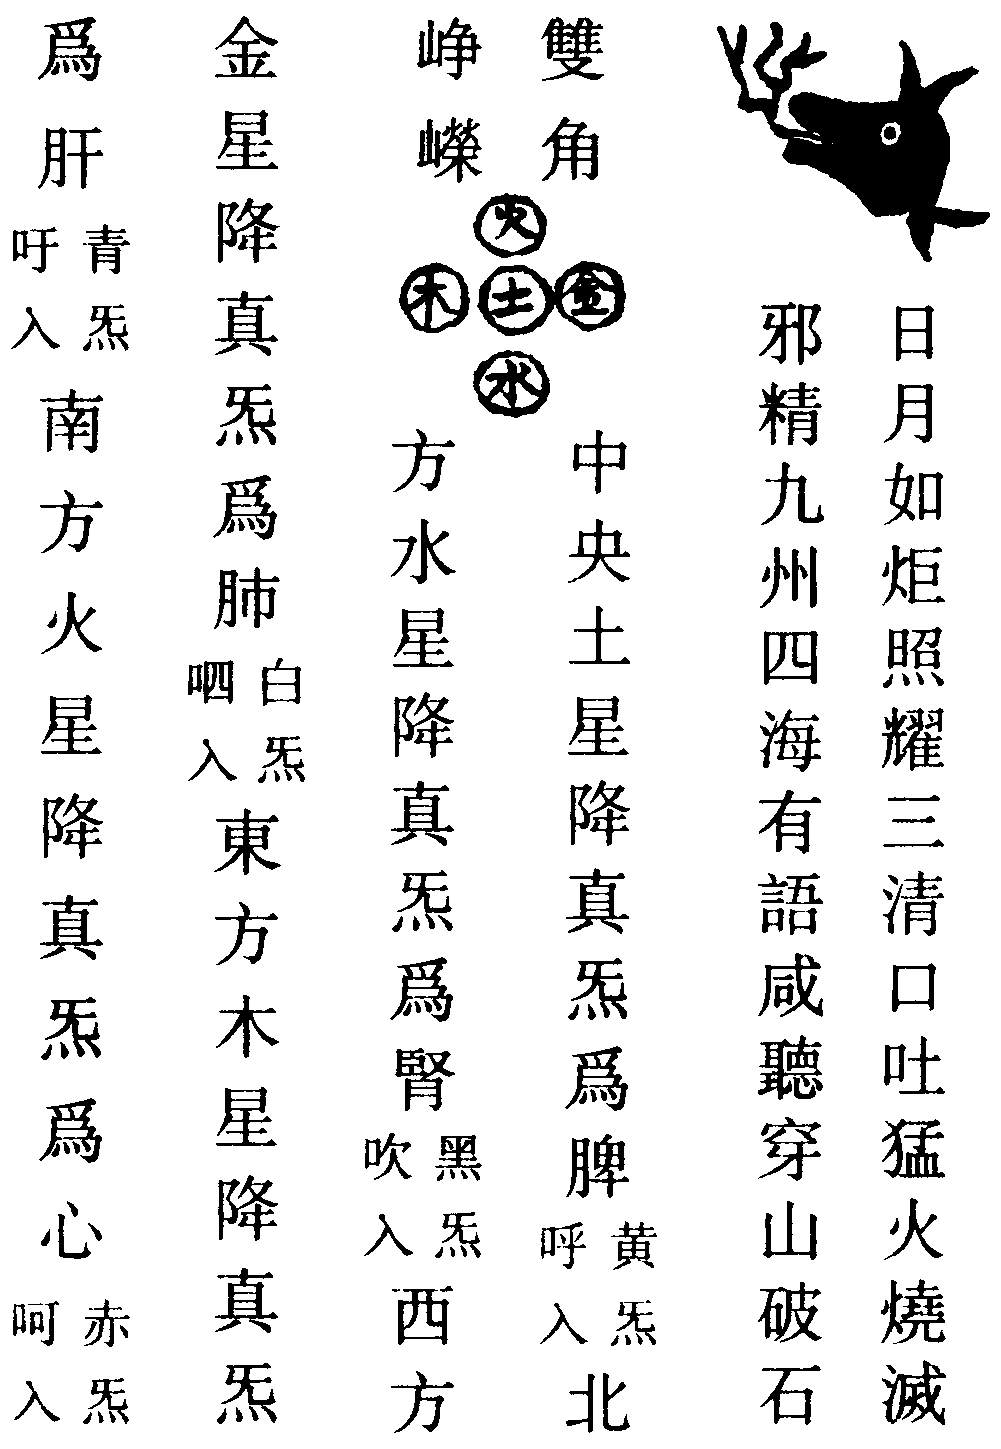 日月如炬照耀三清口吐猛火燒滅
邪精九州四海有語咸聽穿山破石
雙角
崢嶸
火
木土金
水
中央土星降真炁爲脾黄炁呼入北
方水星降真炁爲腎黑炁吹入西方
金星降真炁爲肺白炁呬入東方木星降真炁
爲肝青炁吁入南方火星降真炁爲心赤炁呵入